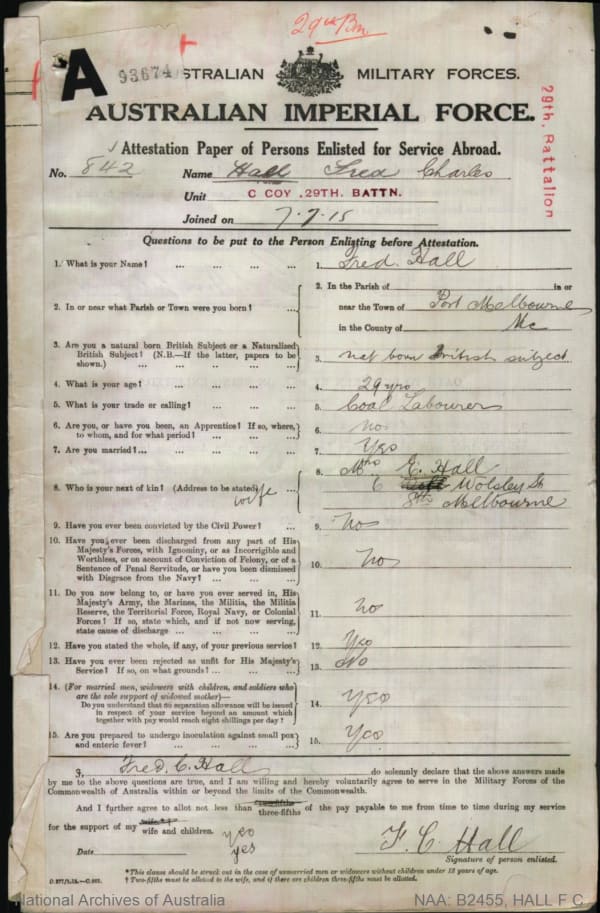 29th Bn
A 93674 AUSTRALIAN MILITARY FORCES.
AUSTRALIAN IMPERIAL FORCE.
29th. Battalion
Attestation Paper of Persons Enlisted for Service Abroad.
No. 842 Name Hall Fred Charles
Unit C COY .29TH. BATTN.
Joined on 7.7.15
Questions to be put to the Person Enlisting before Attestation.
1. What is your Name? ... ... ... ... 1. Fred. Hall
2. In or near what Parish or Town were you born? ... 2. In the Parish of in or
near the Town of Port Melbourne
in the County of Vic
3. Are you a natural born British Subject or a Naturalized
British Subject? (N.B.—If the latter, papers to be
shown.) ... ... ... ... 3. nat born British subject
4. What is your age? ... ... ... ... 4. 29 yrs
5. What is your trade or calling? ... ... ... 5. Coal Labourer
6. Are you, or have you been, an Apprentice? If so, where,
to whom, and for what period? ... ... 6. no
7. Are you married?... ... ... ... 7. Yes
8. Who is your next of kin? (Address to be stated) ... wife 8. Mrs E. Hall
6 Wolsley St
Sth Melbourne
9. Have you ever been convicted by the Civil Power? ... 9. No
10. Have you ever been discharged from any part of His
Majesty's Forces, with Ignominy, or as Incorrigible and
Worthless, or on account of Conviction of Felony, or of a
Sentence of Penal Servitude, or have you been dismissed
with Disgrace from the Navy? ... ... 10. No
11. Do you now belong to, or have you ever served in, His
Majesty's Army, the Marines, the Militia, the Militia
Reserve, the Territorial Force, Royal Navy, or Colonial
Forces? If so, state which, and if not now serving,
state cause of discharge ... ... ... 11. no
12. Have you stated the whole, if any, of your previous service? 12. Yes
13. Have you ever been rejected as unfit for His Majesty's
Service? If so, on what grounds? ... ... 13. No
14. (For married men, widowers with children, and soldiers who
are the sole support of widowed mother)—
Do you understand that no separation allowance will be issued
in respect of your service beyond an amount which
together with pay would reach eight shillings per day? 14. yes
15. Are you prepared to undergo inoculation against small pox
and enteric fever? ... ... ... 15. Yes
I, Fred. C. Hall do solemnly declare that the above answers made
by me to the above questions are true, and I am willing and hereby voluntarily agree to serve in the Military Forces of the
Commonwealth of Australia within or beyond the limits of the Commonwealth.
And I further agree to allot not less than two-fifths three-fifths of the pay payable to me from time to time during my service
for the support of my wife wife and children. yes
Date yes F. C. Hall
Signature of person enlisted.
*This clause should be struck out in the case of unmarried men or widowers without children under 18 years of age.
† Two-fifths must be allotted to the wife, and if there are children three-fifths must be allotted.
National Archives of Australia NAA: B2455, HALL F C